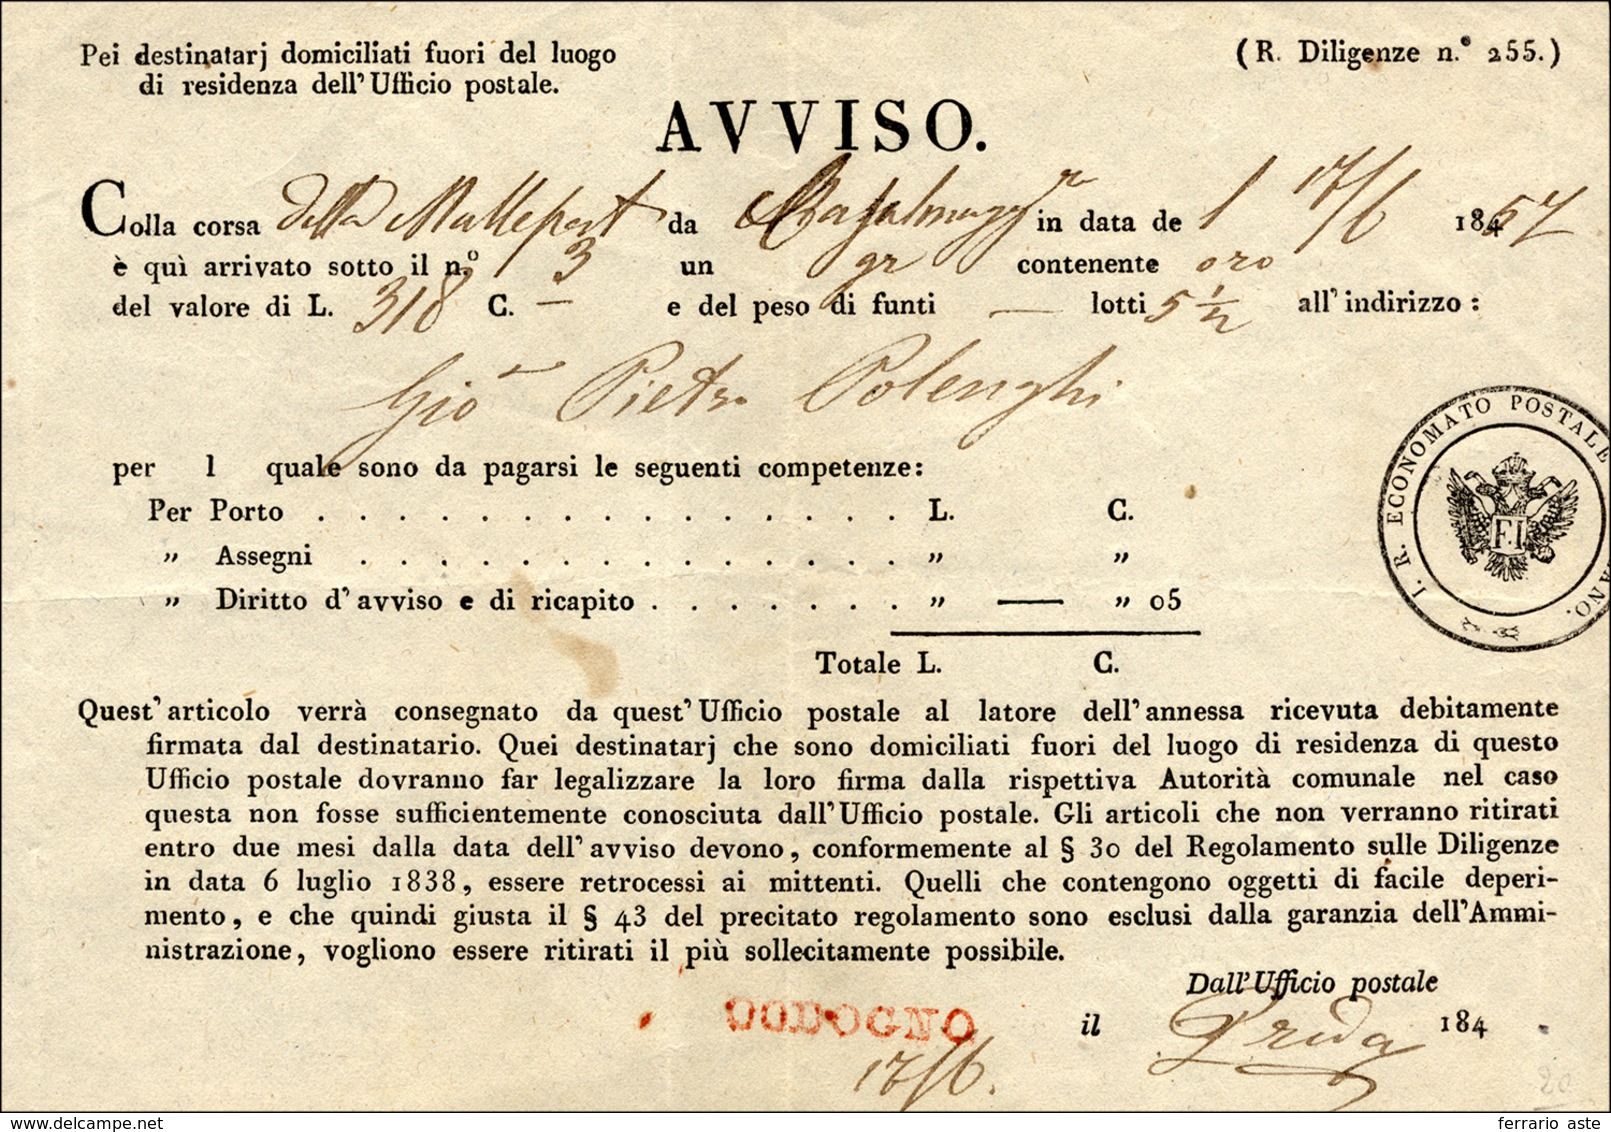 Pei destinatarj domiciliati fuori del luogo
di residenza dell' Ufficio postale.
(R. Diligenze n.° 255.)
AVVISO.
Colla corsa della Mallepost da Casalmagg.re in data de l 17/6 1857
è quì arrivato sotto il n.° 3 un gr contenente oro
del valore di L. 318 C. — e del peso di funti — lotti 5 1/2 all' indirizzo:
Gio Pietro Polenghi
per l quale sono da pagarsi le seguenti competenze:
Per Porto . . . . . . . . . . . . . . . L. C.
„ Assegni . . . . . . . . . . . . . . „ „
„ Diritto d' avviso e di ricapito . . . . . . . „ — „ 05
Totale L. C.
I. R. ECONOMATO POSTALE
F.I.
Quest' articolo verrà consegnato da quest' Ufficio postale al latore dell' annessa ricevuta debitamente
firmata dal destinatario. Quei destinatarj che sono domiciliati fuori del luogo di residenza di questo
Ufficio postale dovranno far legalizzare la loro firma dalla rispettiva Autorità comunale nel caso
questa non fosse sufficientemente conosciuta dall' Ufficio postale. Gli articoli che non verranno ritirati
entro due mesi dalla data dell' avviso devono, conformemente al § 30 del Regolamento sulle Diligenze
in data 6 luglio 1838, essere retrocessi ai mittenti. Quelli che contengono oggetti di facile deperi-
mento, e che quindi giusta il § 43 del precitato regolamento sono esclusi dalla garanzia dell'Ammi-
nistrazione, vogliono essere ritirati il più sollecitamente possibile.
Dall' Ufficio postale
CODOGNO il 184
17/6.
20
ferrario aste